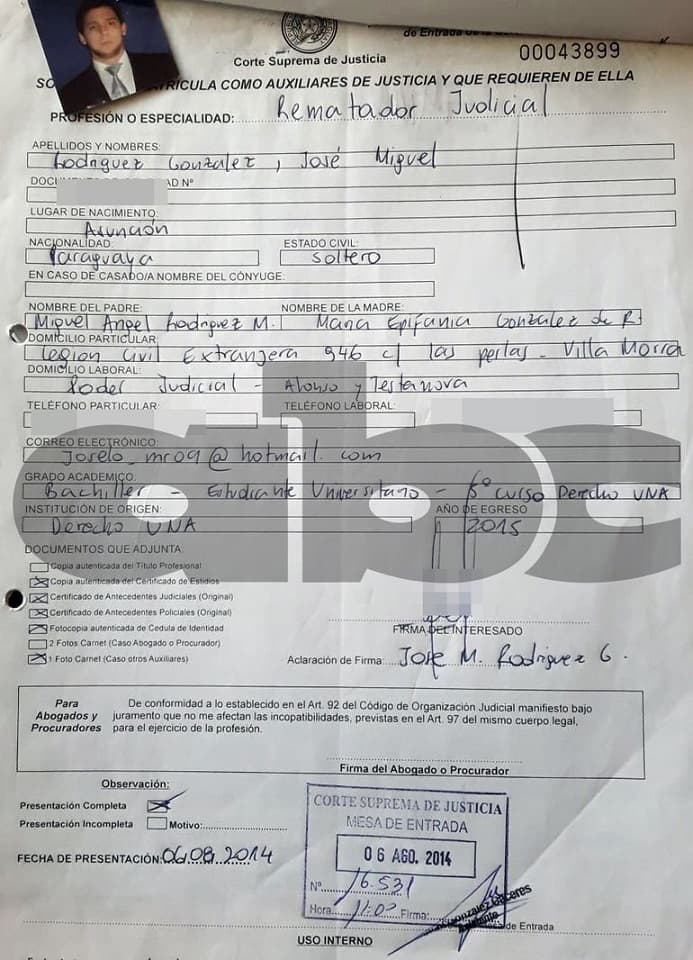 de Entrada
00043899
Corte Suprema de Justicia
RÍCULA COMO AUXILIARES DE JUSTICIA Y QUE REQUIEREN DE ELLA
PROFESIÓN O ESPECIALIDAD: Rematador Judicial
APELLIDOS Y NOMBRES:
Rodriguez Gonzalez, José Miguel
LUGAR DE NACIMIENTO:
Asunción
NACIONALIDAD: ESTADO CIVIL:
Paraguaya Soltero
EN CASO DE CASADO/A NOMBRE DEL CÓNYUGE:
NOMBRE DEL PADRE: NOMBRE DE LA MADRE:
Miguel Angel Rodriguez M. Maria Epifania Gonzalez de R
DOMICILIO PARTICULAR:
Legion Civil Extranjera 946 c/ las perlas - Villa Morra
DOMICILIO LABORAL:
Poder Judicial - Alonso y Testanova
TELÉFONO PARTICULAR: TELÉFONO LABORAL:
CORREO ELECTRÓNICO:
Joselo_mr09@hotmail.com
GRADO ACADEMICO:
Bachiller - Estudiante Universitario - 5º Curso Derecho UNA
INSTITUCIÓN DE ORIGEN: AÑO DE EGRESO
Derecho UNA 2015
abc
DOCUMENTOS QUE ADJUNTA:
Copia autenticada del Título Profesional
Copia autenticada del Certificado de Estudios
Certificado de Antecedentes Judiciales (Original)
Certificado de Antecedentes Policiales (Original)
Fotocopia autenticada de Cedula de Identidad
2 Fotos Carnet (Caso Abogado o Procurador)
1 Foto Carnet (Caso otros Auxiliares)
FIRMA DEL INTERESADO
Aclaración de Firma: Jose M. Rodriguez G.
Para Abogados y Procuradores
De conformidad a lo establecido en el Art. 92 del Código de Organización Judicial manifiesto bajo
juramento que no me afectan las incopatibilidades, previstas en el Art. 97 del mismo cuerpo legal,
para el ejercicio de la profesión.
Firma del Abogado o Procurador
Observación:
Presentación Completa
Presentación Incompleta Motivo:
FECHA DE PRESENTACIÓN: 06.08.2014
CORTE SUPREMA DE JUSTICIA
MESA DE ENTRADA
06 AGO. 2014
Nº 16.531
Hora 11:00 Firma:
de Entrada
USO INTERNO